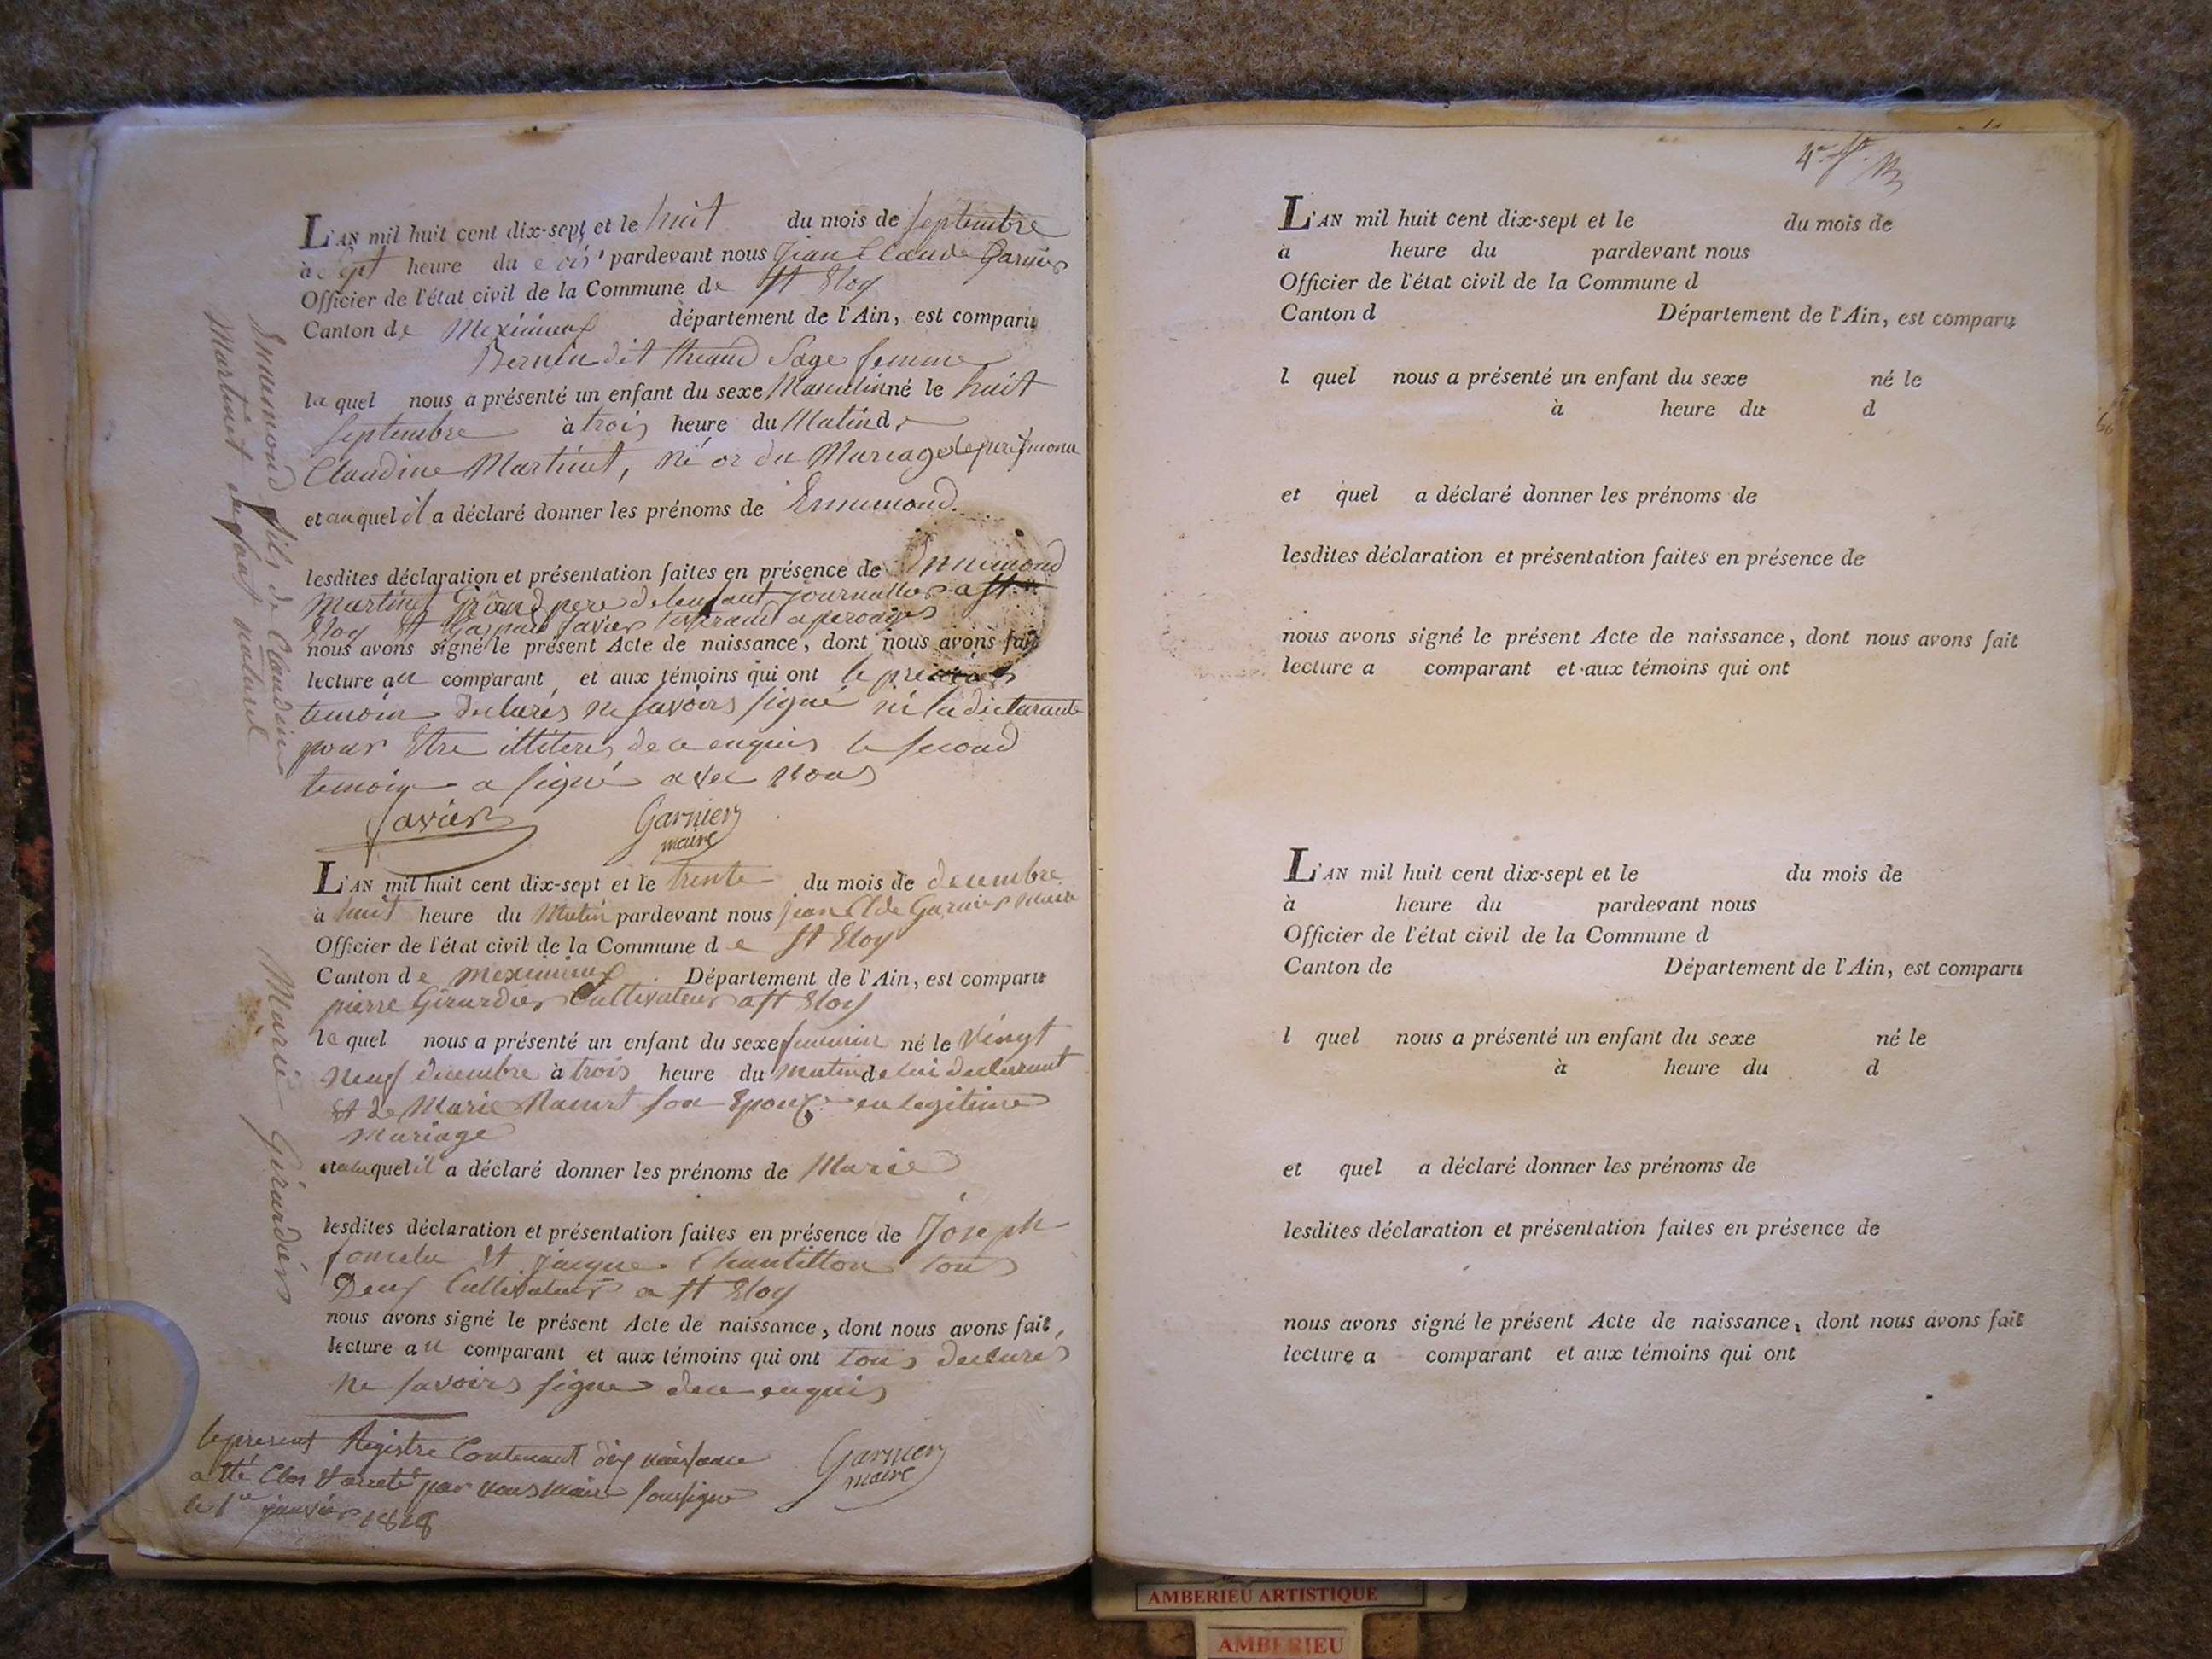 L'AN mil huit cent dix-sept et le huit du mois de septembre
à sept heure du soir pardevant nous Jean Claude Garnier
Officier de l'état civil de la Commune de St Eloy
Canton de Meximieux département de l'Ain, est comparu
Bernin dit sage femme
la quel nous a présenté un enfant du sexe Masculin né le huit
septembre à trois heure du Matin de
Claudine Martinet, né or du Mariage
et auquel il a déclaré donner les prénoms de Ennemond.
lesdites déclaration et présentation faites en présence de Ennemond
Martinet Grand pere de lenfant journallier a St
Eloy et Gaspard Javier a perouges
nous avons signé le présent Acte de naissance, dont nous avons fait
lecture au comparant et aux témoins qui ont le premier
temoin declarés ne savoirs signé ni la declarante
pour Etre illiteres de ce enquis le second
temoin a signé avec nous
Javier Garnier
maire
Ennemond fils de Claudine
Martinet enfant naturel
L'AN mil huit cent dix-sept et le trente du mois de decembre
à huit heure du Matin pardevant nous jean Clde Garnier maire
Officier de l'état civil de la Commune de St Eloy
Canton de meximieux Département de l'Ain, est comparu
pierre Girardier Cultivateur a St Eloy
le quel nous a présenté un enfant du sexe feminin né le vingt
neuf decembre à trois heure du matin de lui declarant
et de Marie son Epouse en legitime
mariage
et auquel il a déclaré donner les prénoms de Marie
lesdites déclaration et présentation faites en présence de Joseph
et jacque Chantillon tous
Deux Cultivateurs a St Eloy
nous avons signé le présent Acte de naissance, dont nous avons fait,
lecture au comparant et aux témoins qui ont tous declares
ne savoirs signer de ce enquis
Marie Girardier
le present Registre Contenant dix naissance
a été Clos et areté par nous maire soussigné
le 1er janvier 1818
Garnier
maire
L'AN mil huit cent dix-sept et le du mois de
à heure du pardevant nous
Officier de l'état civil de la Commune d
Canton d Département de l'Ain, est comparu
l quel nous a présenté un enfant du sexe né le
à heure du d
et quel a déclaré donner les prénoms de
lesdites déclaration et présentation faites en présence de
nous avons signé le présent Acte de naissance, dont nous avons fait
lecture a comparant et aux témoins qui ont
L'AN mil huit cent dix-sept et le du mois de
à heure du pardevant nous
Officier de l'état civil de la Commune d
Canton de Département de l'Ain, est comparu
l quel nous a présenté un enfant du sexe né le
à heure du d
et quel a déclaré donner les prénoms de
lesdites déclaration et présentation faites en présence de
nous avons signé le présent Acte de naissance, dont nous avons fait
lecture a comparant et aux témoins qui ont
AMBERIEU ARTISTIQUE
AMBERIEU